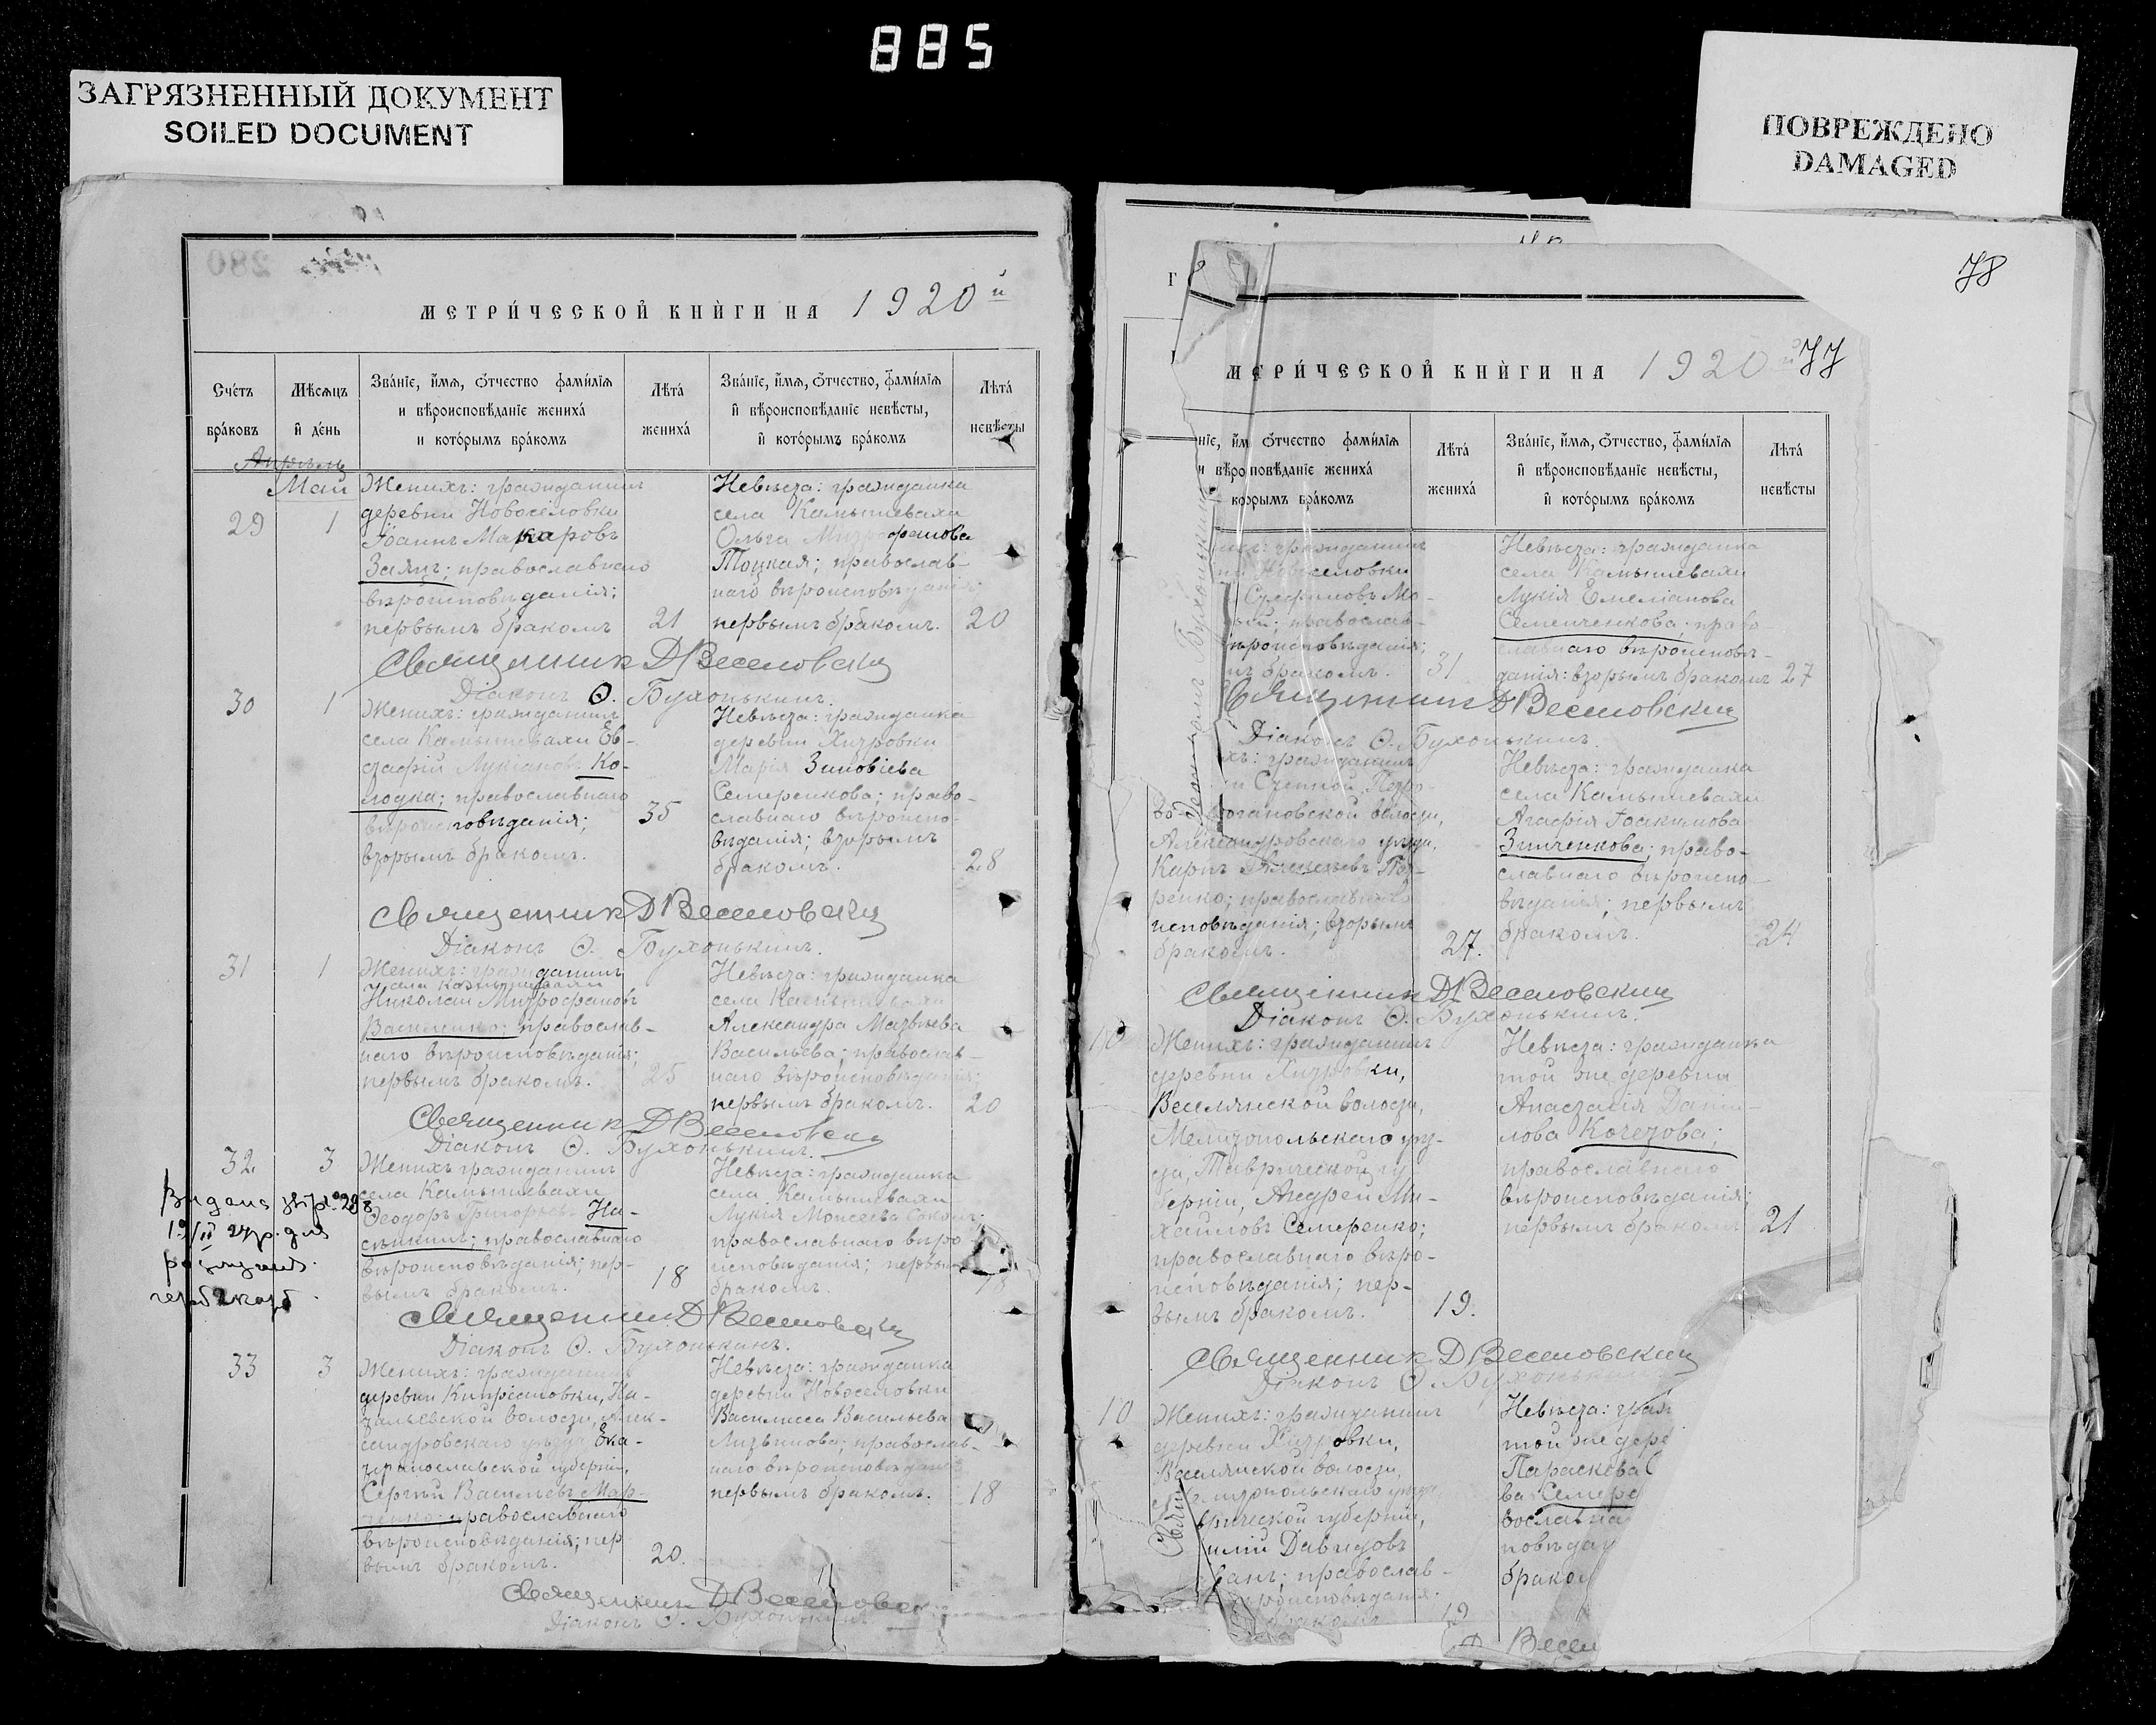 885
ЗАГРЯЗНЕННЫЙ ДОКУМЕНТ
SOILED DOCUMENT
ПОВРЕЖДЕНО
DAMAGED
МЕТРИ́ЧЕСКОЙ КНЍГИ НА 1920 й
Сче́тъ бра́ковъ
Мѣсѧцъ и҆ де́нь
Зва́нїе, и҆́мѧ, ѻ҆́тчество фами́лїѧ
и вѣроисповѣ́данїе жениха́
и кото́рымъ бра́комъ
Лѣта́ жениха́
Зва́нїе, и҆́мѧ, ѻ҆́тчество, фами́лїѧ
и҆ вѣроисповѣ́данїе невѣ́сты,
и҆ кото́рымъ бра́комъ
Лѣта́ невѣ́сты
Апрѣль
Май
29
1
Женихъ: гражданинъ
деревни Новоселовки
Іоаннъ Макаровъ
Заяцъ; православнаго
вѣроисповѣданія;
первымъ бракомъ
21
Невѣста: гражданка
села Камышевахи
Ольга Митрофанова
Тоцкая; православ-
наго вѣроисповѣданія;
первымъ бракомъ.
20
Священник Д Веселовский
Діаконъ Ѳ. Бухонькинъ.
30
1
Женихъ: гражданинъ
села Камышевахи Ев-
стафій Лукіановъ Ко-
лодка; православнаго
вѣроисповѣданія;
вторымъ бракомъ.
35
Невѣста: гражданка
деревни Хитровки
Марія Зиновіева
Семеренкова; право-
славнаго вѣроиспо-
вѣданія; вторымъ
бракомъ.
28
Священник Д Веселовский
Діаконъ Ѳ. Бухонькинъ.
31
1
Женихъ: гражданинъ
села Камышевахи
Николай Митрофановъ
Василенко; православ-
наго вѣроисповѣданія;
первымъ бракомъ.
25
Невѣста: гражданка
села Камышевахи
Александра Матвѣева
Васильева; православ-
наго вѣроисповѣданія;
первымъ бракомъ.
20
Священник Д Веселовский
Діаконъ Ѳ. Бухонькинъ.
32
3
Женихъ гражданинъ
села Камышевахи
Ѳеодоръ Григорьевъ Ни-
православнаго
вѣроисповѣданія; пер-
вымъ бракомъ.
18
Невѣста: гражданка
села Камышевахи
Лукія Моисеева
православнаго вѣро-
исповѣданія; первым
бракомъ.
18
Священник Д Веселовский
Діаконъ Ѳ. Бухонькинъ.
33
3
Женихъ: гражданинъ
деревни
волости, Алек-
сандровскаго уѣзда Ека-
теринославской губерніи,
Сергѣй Васильевъ Мар-
ченко; православнаго
вѣроисповѣданія; пер
вымъ бракомъ.
20.
Невѣста: гражданка
деревни Новоселовки
Василисса Васильева
православ-
наго вѣроисповѣданія
первымъ бракомъ.
18
Священник Д Веселовск
Діаконъ Ѳ. Бухонькинъ
78
МЕТРИ́ЧЕСКОЙ КНЍГИ НА 1920 й
77
нїе, и҆́м ѻ҆́тчество фами́лїѧ
и вѣро повѣ́данїе жениха́
ко рымъ бра́комъ
Лѣта́ жениха́
Зва́нїе, и҆́мѧ, ѻ҆́тчество, фами́лїѧ
и҆ вѣроисповѣ́данїе невѣ́сты,
и҆ кото́рымъ бра́комъ
Лѣта́ невѣ́сты
ихъ: гражданинъ
ни Новоселовки
Мо-
православ-
вѣроисповѣданія;
мъ бракомъ.
31
Невѣста: гражданка
села Камышевахи
Лукія Емеліанова
Семенченкова; право-
славнаго вѣроисповѣ-
данія: вторымъ бракомъ
27
Священник Д Веселовский
Діаконъ Ѳ. Бухонькинъ.
хъ: гражданинъ
волости,
Александровскаго уѣзда,
Карпъ Алексѣевъ
ренко; православнаго
исповѣданія; вторымъ
бракомъ.
27.
Невѣста: гражданка
села Камышевахи
Агафія Іоакимова
Зинченкова; право-
славнаго вѣроиспо-
вѣданія; первымъ
бракомъ.
24
Священник Д Веселовский
Діаконъ Ѳ. Бухонькинъ.
10
Женихъ: гражданинъ
деревни Хитровки,
Веселянской волости,
Мелитопольскаго уѣз-
да, Таврической гу
берніи, Андрей Ми-
хаиловъ Семеренко;
православнаго вѣро-
исповѣданія; пер-
вымъ бракомъ.
19.
Невѣста: гражданка
той же деревни
Анастасія Даніи-
лова Кочетова;
православнаго
вѣроисповѣданія;
первымъ бракомъ
21
Священник Д Веселовский
Діаконъ Ѳ. Бухонькинъ
10
Женихъ: гражданинъ
деревни Хитровки,
Веселянской волости,
Мелитопольскаго уѣзда
врической губерніи,
Давидовъ
православ-
вѣроисповѣданія.
бракомъ
19
Невѣста: граж
той же дере
Параскова
ва Семере
вославна
повѣдан
брако
Д Весел